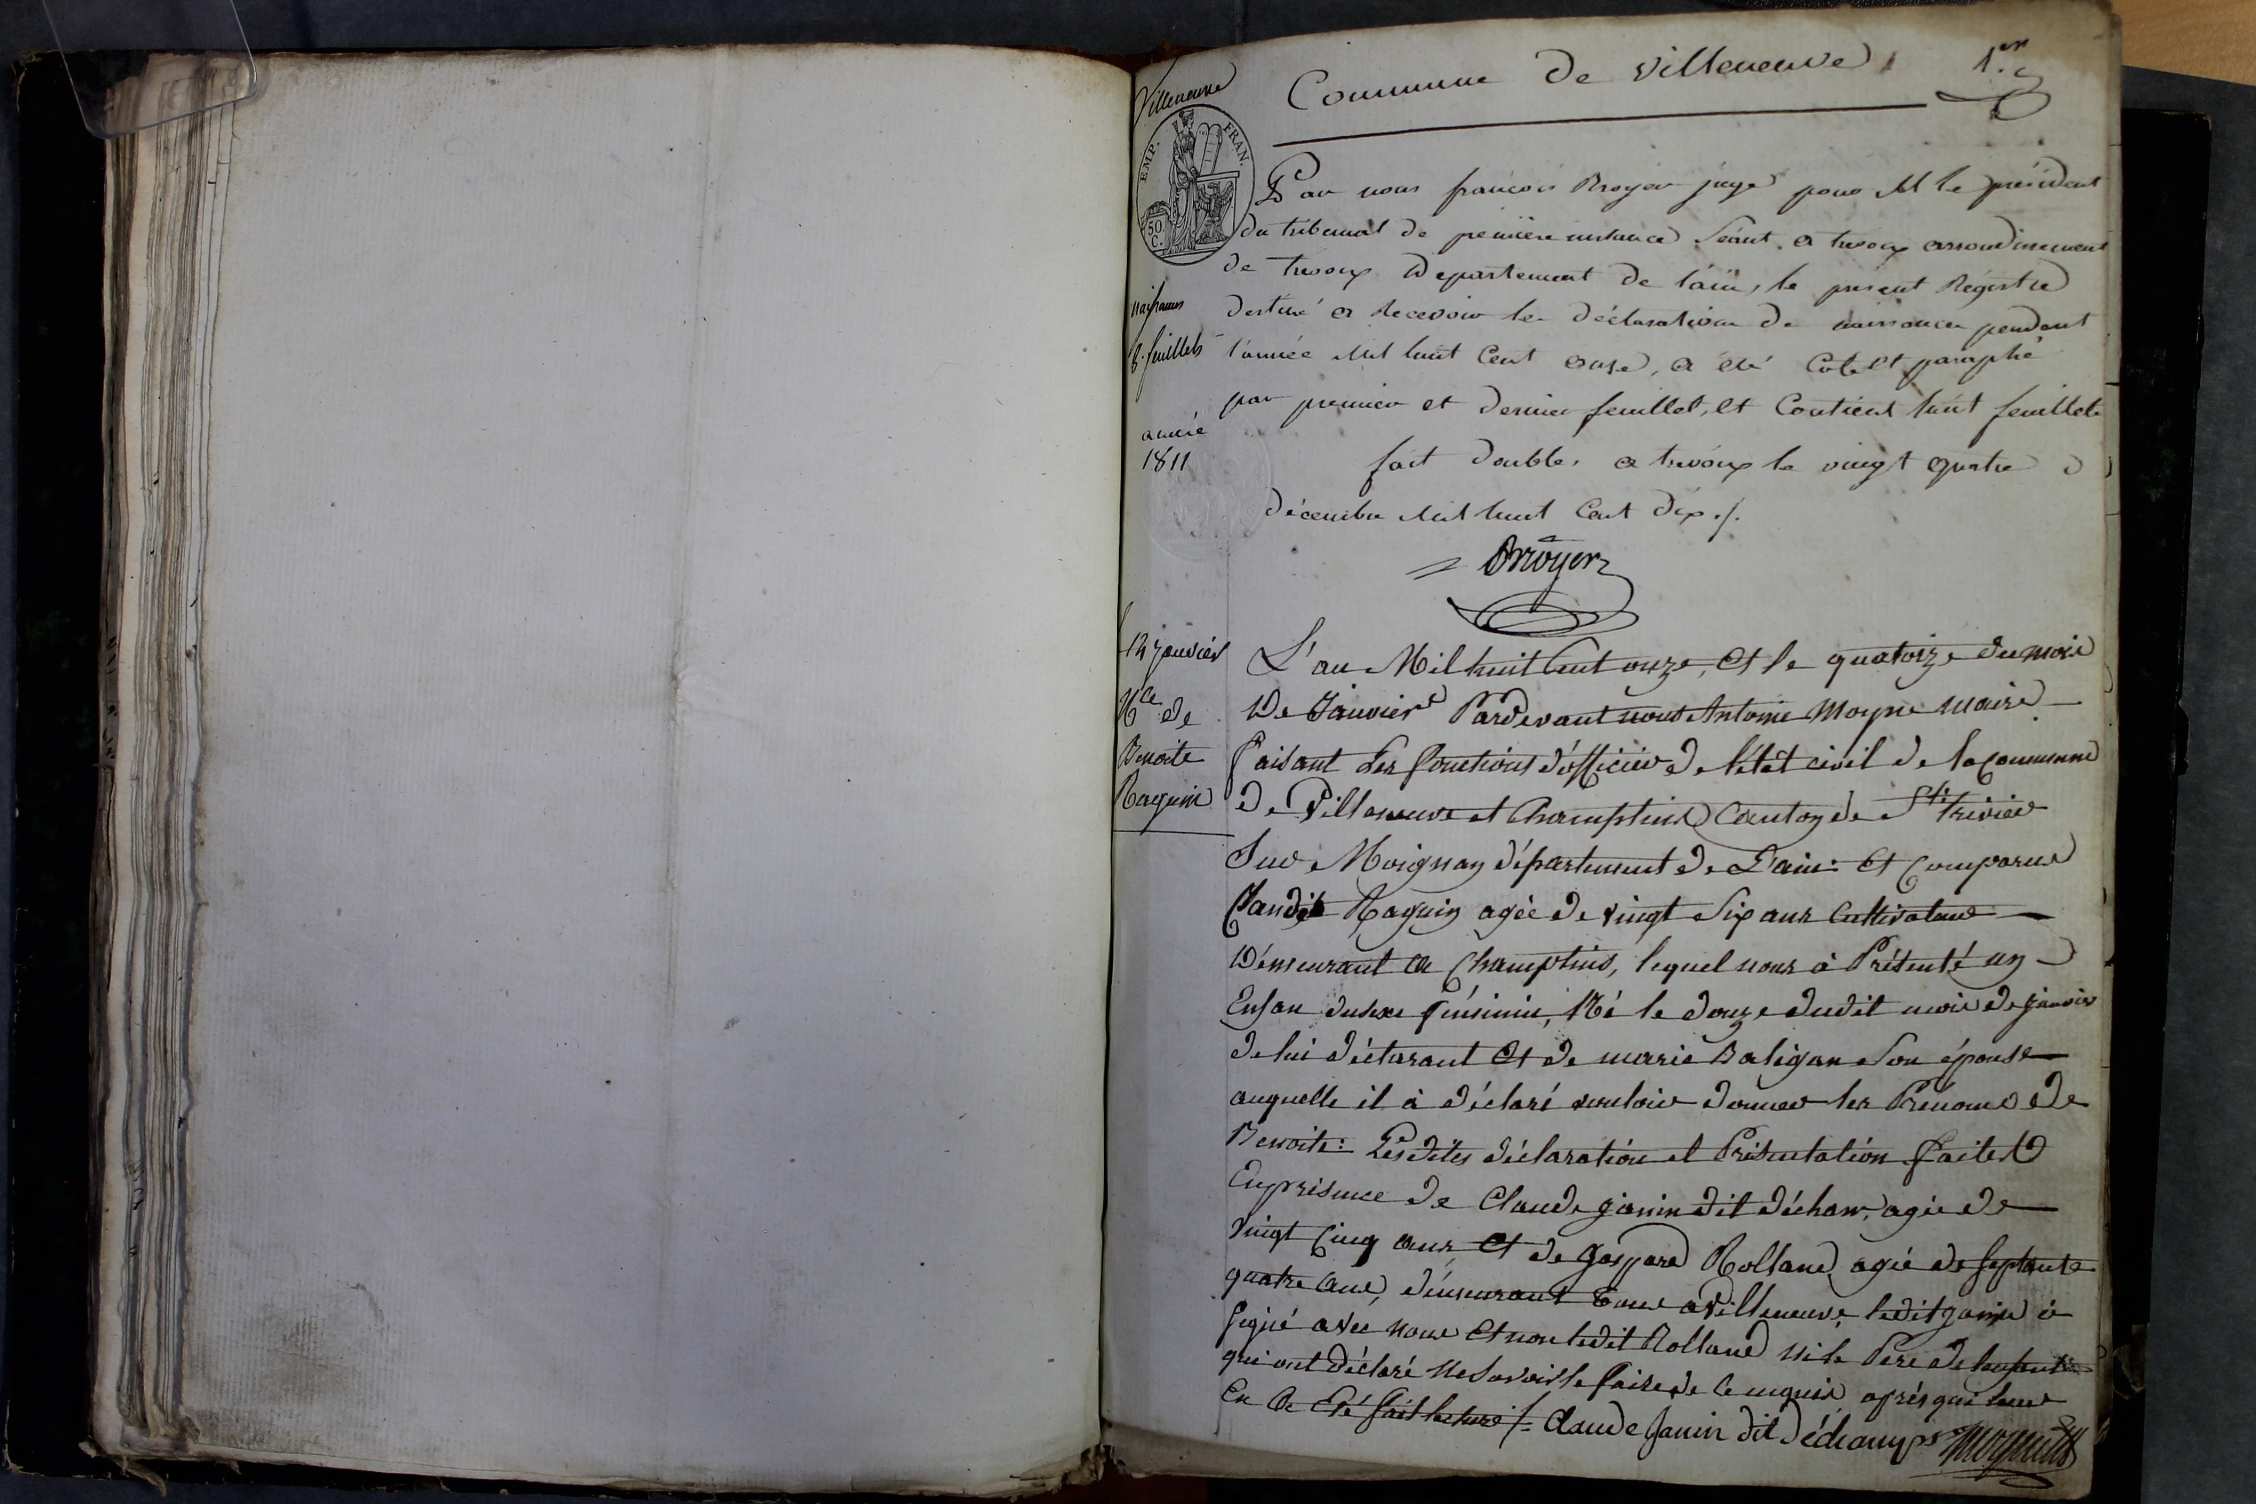 Villeneuve
Commune de Villeneuve 1.er
EMP. FRAN.
50 C.
naissances
8. feuillets
année
1811
Par nous françois Broyer juge pour M le président
du tribunal de premiere instance Séant a trevoux arrondissement
de trevoux Departement de l'ain, le présent Régistre
destiné a Recevoir les déclarations de naissances pendant
l'année Mil huit Cent onze, a été Coté et paraphé
par premier et dernier feuillet, et Contient huit feuillets
fait double, a trévoux le vingt quatre
décembre Mil huit Cent dix ./.
Broyer
14 janvier
N.ce de
Benoite
Raquin
L'an Mil huit Cent onze, Et le quatorze du mois
De Janvier Pardevant nous Antoine Moyne Maire
faisant Les fonctions d'officier de l'état civil de la Commune
de Villeneuve et Champtins Canton de St. trivier
Sur Moignan département de L'ain: Et Comparue
Raquin agée de vingt Six ans Cultivateur
Démeurant a Champtins, lequel nous à Présenté un
Enfan dusexe féminin, Né le douze dudit mois de janvier
de lui déclarant Et de marie Baligan Son épouse
auquelle il à déclaré vouloir donner les Prénoms de
Benoite: Lesdites déclaration et Présentation faites
En présence de Claude janin dit déchan, agée de
vingt Cinq ans Et de Gaspard Rolland, agée de septante
quatre ans, démeurant Tous a Villeneuve, ledit janin à
signé avec nous Et non ledit Rolland ni le Pere de lenfant
qui ont Déclaré Ne Savoir le faire de Ce enquis après que leur
En a Eté fait lecture /. Claude Janin dit déchamps Moyne